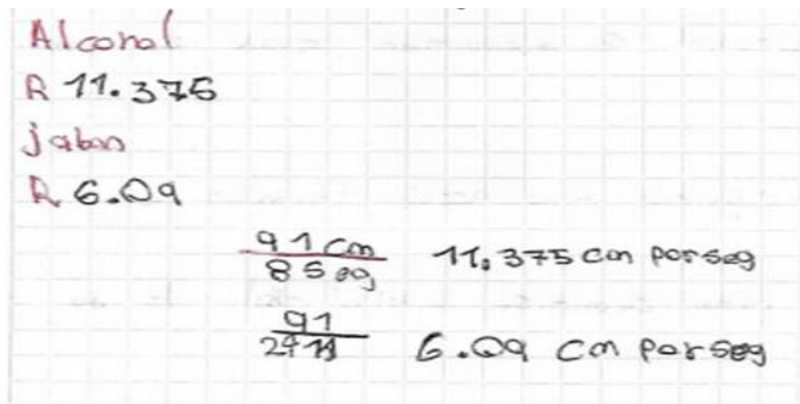 Alcohol
R 11.375
jabon
R 6.09
91 cm
8 seg
11,375 cm por seg
91
6.09 cm por seg